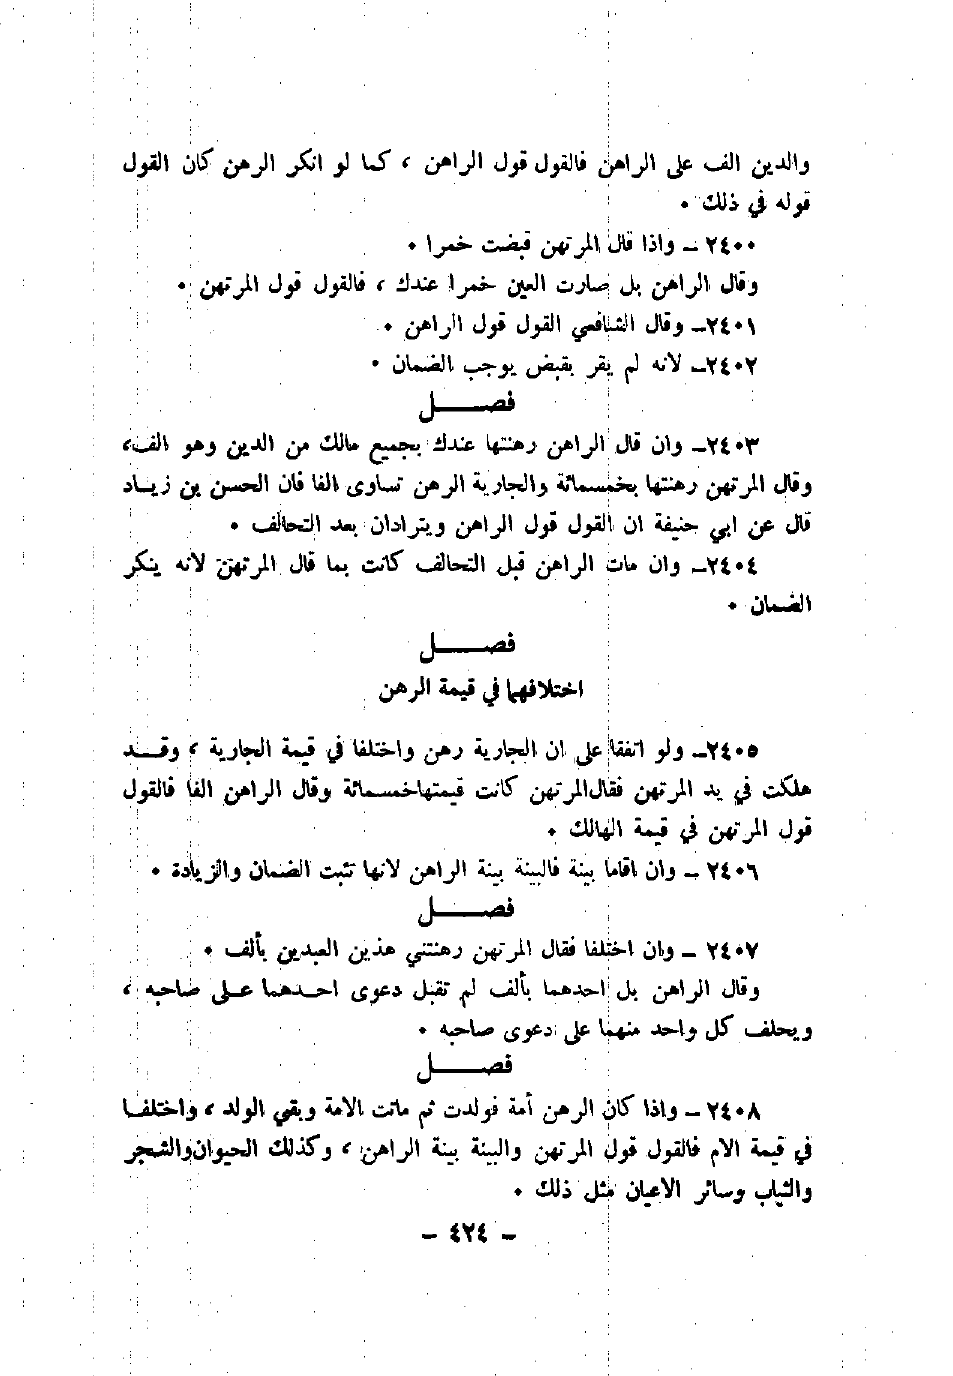 والدين الف على الراهن فالقول قول الراهن ، كما لو انكر الرهن كان القول
قوله في ذلك ٠
٢٤٠٠ ـ واذا قال المرتهن قبضت خمرا ٠
وقال الراهن بل صارت العين خمرا عندك ، فالقول قول المرتهن ٠
٢٤٠١ـ وقال الشافعي القول قول الراهن ٠
٢٤٠٢ـ لانه لم يقر بقبض يوجب الضمان ٠
فصــــــل
٢٤٠٣ـ وان قال الراهن رهنتها عندك بجميع مالك من الدين وهو الف،
وقال المرتهن رهنتها بخمسمائة والجارية الرهن تساوى الفا فان الحسن بن زيـاد
قال عن ابي حنيفة ان القول قول الراهن ويترادان بعد التحالف ٠
٢٤٠٤ـ وان مات الراهن قبل التحالف كانت بما قال المرتهن لانه ينكر
الضمان ٠
فصــــــل
اختلافهما في قيمة الرهن
٢٤٠٥ـ ولو اتفقا على ان الجارية رهن واختلفا في قيمة الجارية ، وقــد
هلكت في يد المرتهن فقال المرتهن كانت قيمتها خمسمائة وقال الراهن الفا فالقول
قول المرتهن في قيمة الهالك ٠
٢٤٠٦ ـ وان اقاما بينة فالبينة بينة الراهن لانها تثبت الضمان والزيادة ٠
فصــــــل
٢٤٠٧ ـ وان اختلفا فقال المرتهن رهنتني هذين العبدين بألف ٠
وقال الراهن بل احدهما بألف لم تقبل دعوى احـدهما عـلى صاحبه ،
ويحلف كل واحد منهما على دعوى صاحبه ٠
فصــــــل
٢٤٠٨ـ واذا كان الرهن أمة فولدت ثم ماتت الامة وبقي الولد ، واختلفـا
في قيمة الام فالقول قول المرتهن والبينة بينة الراهن ، وكذلك الحيوان والشجر
والثياب وسائر الاعيان مثل ذلك ٠
ـ ٤٢٤ ـ